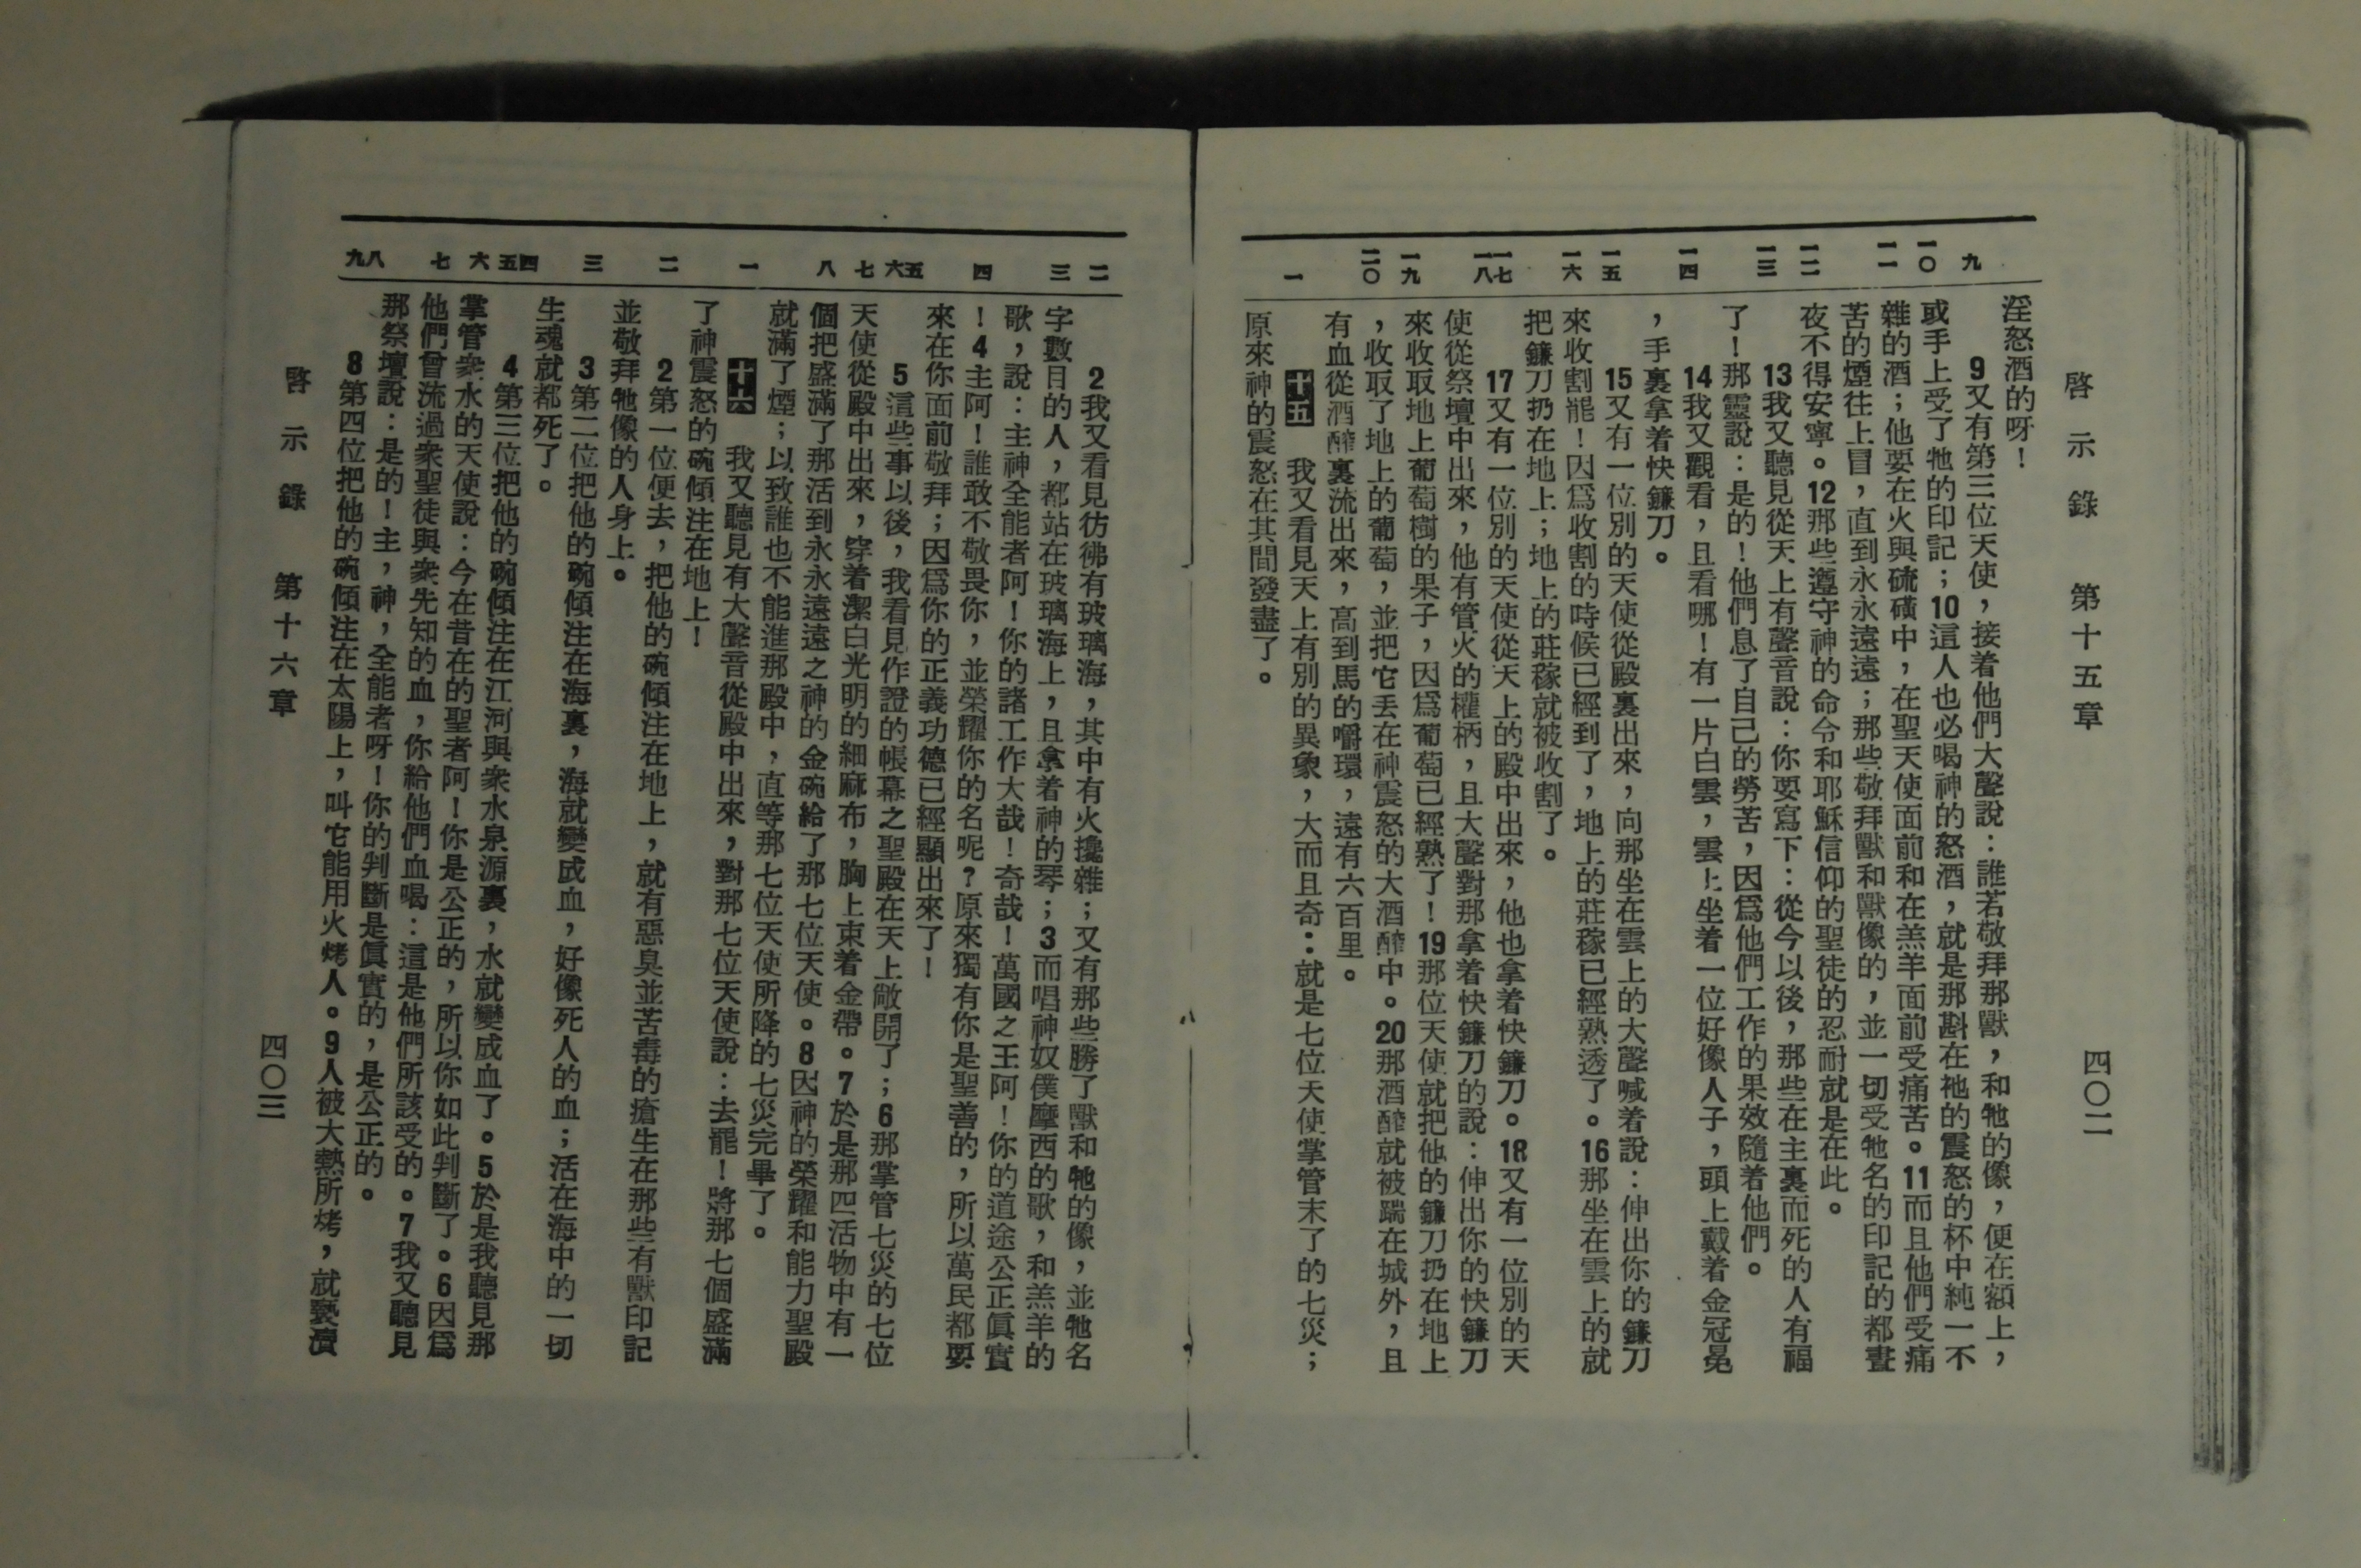 啓示錄 第十五章 四〇二
九
一〇
一一
一二
一三
一四
一五
一六
一七
一八
一九
二〇
一
淫怒酒的呀！
9又有第三位天使，接着他們大聲說：誰若敬拜那獸，和牠的像，便在額上，
或手上受了牠的印記；10這人也必喝神的怒酒，就是那斟在祂的震怒的杯中純一不
雜的酒；他要在火與硫磺中，在聖天使面前和在羔羊面前受痛苦。11而且他們受痛
苦的煙往上冒，直到永永遠遠；那些敬拜獸和獸像的，並一切受牠名的印記的都晝
夜不得安寧。12那些遵守神的命令和耶穌信仰的聖徒的忍耐就是在此。
13我又聽見從天上有聲音說：你要寫下：從今以後，那些在主裏而死的人有福
了！那靈說：是的！他們息了自己的勞苦，因爲他們工作的果效隨着他們。
14我又觀看，且看哪！有一片白雲，雲上坐着一位好像人子，頭上戴着金冠冕
，手裏拿着快鐮刀。
15又有一位別的天使從殿裏出來，向那坐在雲上的大聲喊着說：伸出你的鐮刀
來收割罷！因爲收割的時候已經到了，地上的莊稼已經熟透了。16那坐在雲上的就
把鐮刀扔在地上；地上的莊稼就被收割了。
17又有一位別的天使從天上的殿中出來，他也拿着快鐮刀。18又有一位別的天
使從祭壇中出來，他有管火的權柄，且大聲對那拿着快鐮刀的說：伸出你的快鐮刀
來收取地上葡萄樹的果子，因爲葡萄已經熟了！19那位天使就把他的鐮刀扔在地上
，收取了地上的葡萄，並把它丟在神震怒的大酒醡中。20那酒醡就被踹在城外，且
有血從酒醡裏流出來，高到馬的嚼環，遠有六百里。
十五 我又看見天上有別的異象，大而且奇：就是七位天使掌管末了的七災；
原來神的震怒在其間發盡了。
二
三
四
五
六
七
八
一
二
三
四
五
六
七
八
九
2我又看見彷彿有玻璃海，其中有火攙雜；又有那些勝了獸和牠的像，並牠名
字數目的人，都站在玻璃海上，且拿着神的琴；3而唱神奴僕摩西的歌，和羔羊的
歌，說：主神全能者阿！你的諸工作大哉！奇哉！萬國之王阿！你的道途公正眞實
！4主阿！誰敢不敬畏你，並榮耀你的名呢？原來獨有你是聖善的，所以萬民都要
來在你面前敬拜；因爲你的正義功德已經顯出來了！
5這些事以後，我看見作證的帳幕之聖殿在天上敞開了；6那掌管七災的七位
天使從殿中出來，穿着潔白光明的細麻布，胸上束着金帶。7於是那四活物中有一
個把盛滿了那活到永永遠遠之神的金碗給了那七位天使。8因神的榮耀和能力聖殿
就滿了煙；以致誰也不能進那殿中，直等那七位天使所降的七災完畢了。
十六 我又聽見有大聲音從殿中出來，對那七位天使說：去罷！將那七個盛滿
了神震怒的碗傾注在地上！
2第一位便去，把他的碗傾注在地上，就有惡臭並苦毒的瘡生在那些有獸印記
並敬拜牠像的人身上。
3第二位把他的碗傾注在海裏，海就變成血，好像死人的血；活在海中的一切
生魂就都死了。
4第三位把他的碗傾注在江河與衆水泉源裏，水就變成血了。5於是我聽見那
掌管衆水的天使說：今在昔在的聖者阿！你是公正的，所以你如此判斷了。6因爲
他們曾流過衆聖徒與衆先知的血，你給他們血喝：這是他們所該受的。7我又聽見
那祭壇說：是的！主，神，全能者呀！你的判斷是眞實的，是公正的。
8第四位把他的碗傾注在太陽上，叫它能用火烤人。9人被大熱所烤，就褻瀆
啓示錄 第十六章 四〇三